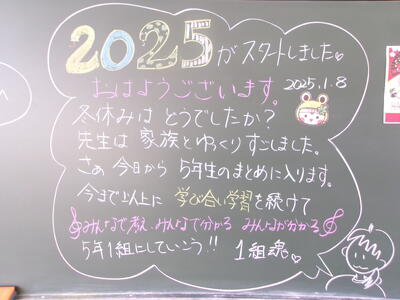 2025がスタートしました♡
おはようございます。 2025.1.8
冬休みは どうでしたか?
先生は 家族と ゆっくり すごしました。
さぁ 今日から 5年生のまとめに入ります。
今まで以上に 学び合い学習を続けて
みんなで考え みんなで分かる みんなが分かる
5年1組にしていこう!! 1組魂♡